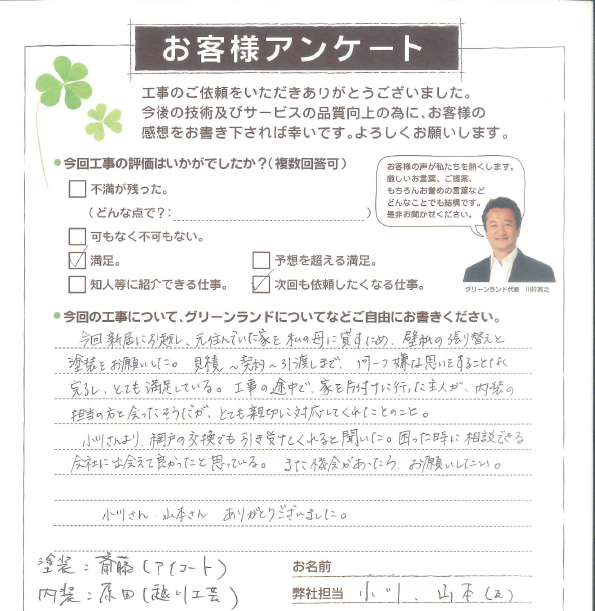 お客様アンケート
工事のご依頼をいただきありがとうございました。
今後の技術及びサービスの品質向上の為に、お客様の
感想をお書き下されば幸いです。よろしくお願いします。
今回工事の評価はいかがでしたか？(複数回答可)
不満が残った。
(どんな点で？: )
可もなく不可もない。
満足。
予想を超える満足。
知人等に紹介できる仕事。
次回も依頼したくなる仕事。
お客様の声が私たちを熱くします。
厳しいお言葉、ご提案、
もちろんお誉めの言葉など
どんなことでも結構です。
是非お聞かせください。
グリーンランド代表 川村寛之
今回の工事について、グリーンランドについてなどご自由にお書きください。
今回新居に引越し、元住んでいた家を私の母に貸すため、壁紙の張り替えと
塗装をお願いした。見積〜契約〜引渡しまで、何一つ嫌な思いをすることなく
完了し、とても満足している。工事の途中で、家を片付けに行った主人が、内装の
担当の方と会ったそうだが、とても親切に対応してくれたとのこと。
小川さんより、網戸の交換でも引き受けてくれると聞いた。困った時に相談できる
会社に出会えて良かったと思っている。また機会があったら、お願いしたい。
小川さん 山本さん ありがとうございました。
塗装：斎藤(アイコート)
内装：原田(越川工芸)
お名前
弊社担当 小川、山本(広)